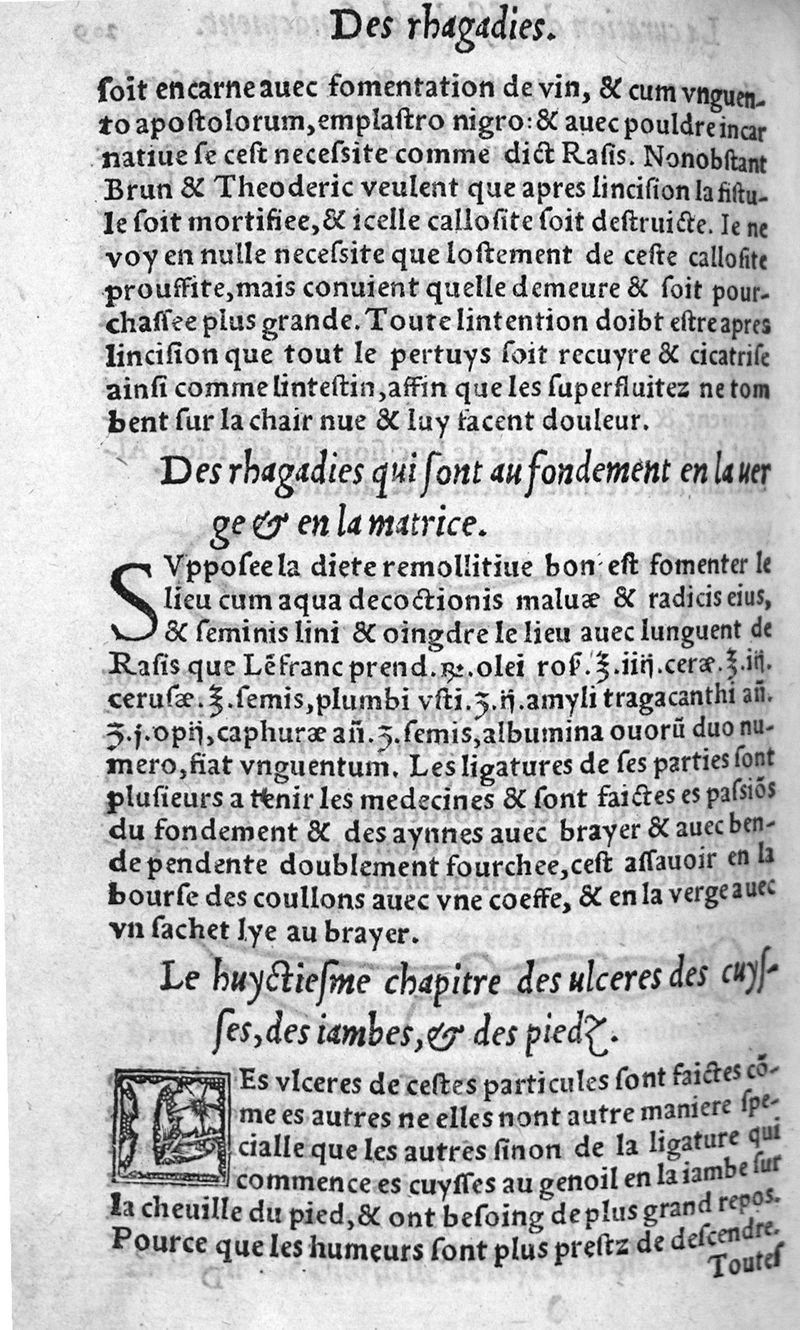 Des rhagadies.
ſoit encarne auec fomentation de vin, & cum vnguen-
to apoſtolorum, emplaſtro nigro: & auec pouldre incar
natiue ſe ceſt neceſsite comme dict Raſis. Nonobſtant
Brun & Theoderic veulent que apres linciſion la fiſtu-
le ſoit mortifiee, & icelle calloſite ſoit deſtruicte. Ie ne
voy en nulle neceſsite que loſtement de ceſte calloſite
prouffite, mais conuient quelle demeure & ſoit pour-
chaſſee plus grande. Toute lintention doibt eſtre apres
linciſion que tout le pertuys ſoit recuyre & cicatriſe
ainſi comme linteſtin, affin que les ſuperfluitez ne tom
bent ſur la chair nue & luy facent douleur.
Des rhagadies qui ſont au fondement en la uer
ge & en la matrice.
SVppoſee la diete remollitiue bon eſt fomenter le
lieu cum aqua decoctionis maluæ & radicis eius,
& ſeminis lini & oingdre le lieu auec lunguent de
Raſis que Lẽfranc prend. ℞. olei roſ. ℥. iiij. ceræ. ℥. iij.
ceruſæ. ℥. ſemis, plumbi vſti. ʒ. ij. amyli tragacanthi añ.
ʒ. j. opij, caphuræ añ. ʒ. ſemis, albumina ouorũ duo nu-
mero, fiat vnguentum. Les ligatures de ſes parties ſont
pluſieurs a tenir les medecines & ſont faictes es paſsiõs
du fondement & des aynnes auec brayer & auec ben-
de pendente doublement fourchee, ceſt aſſauoir en la
bourſe des coullons auec vne coeffe, & en la verge auec
vn ſachet lye au brayer.
Le huyctieſme chapitre des ulceres des cuyſ-
ſes, des iambes, & des piedz.
LEs vlceres de ceſtes particules ſont faictes cõ-
me es autres ne elles nont autre maniere ſpe-
cialle que les autres ſinon de la ligature qui
commence es cuyſſes au genoil en la iambe ſur
la cheuille du pied, & ont beſoing de plus grand repos.
Pource que les humeurs ſont plus preſtz de deſcendre.
Toutes